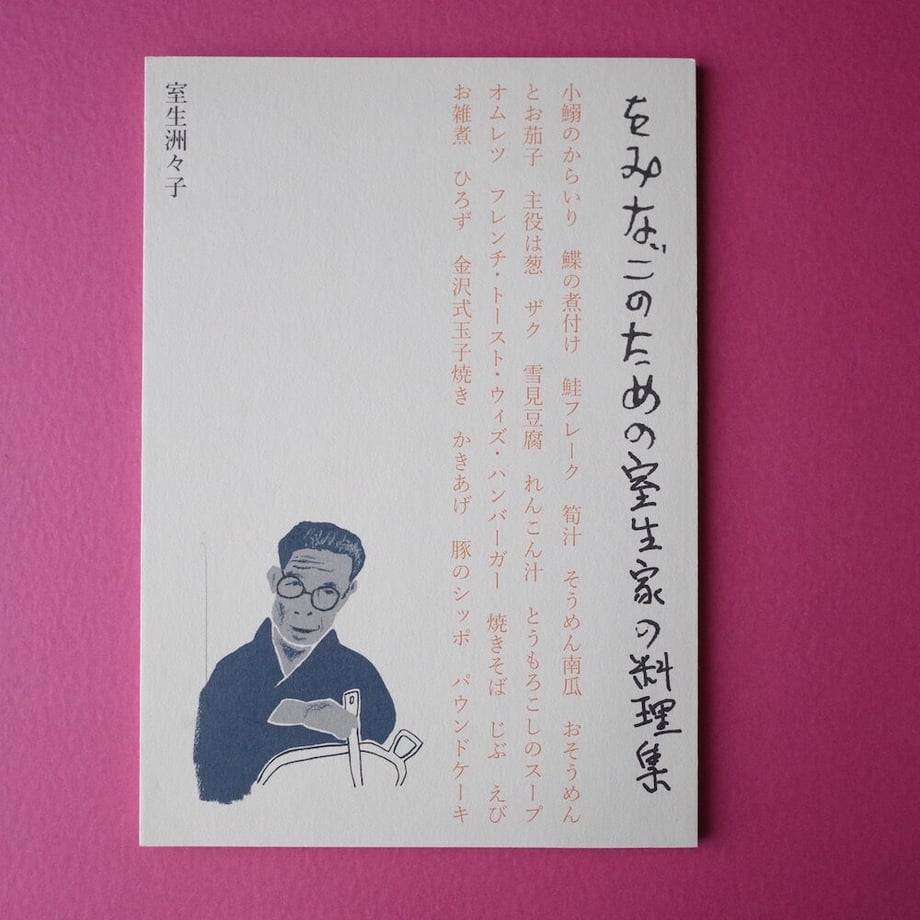 をみなごのための室生家の料理集
小鰯のからいり　鰈の煮付け　鮭フレーク　筍汁　そうめん南瓜　おそうめん
とお茄子　主役は葱　ザク　雪見豆腐　れんこん汁　とうもろこしのスープ
オムレツ　フレンチ・トースト・ウィズ・ハンバーガー　焼きそば　じぶ　えび
お雑煮　ひろず　金沢式玉子焼き　かきあげ　豚のシッポ　パウンドケーキ
室生洲々子